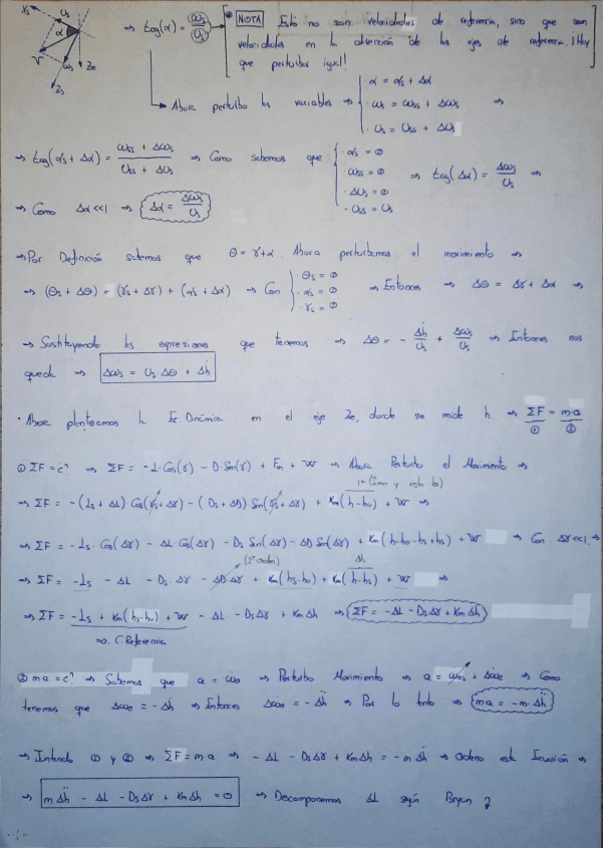 Xs Us α V ωs Ze Zs
→ tag(α) = ωs/Us → [⊛ NOTA Esto no son velocidades de referencia, sino que son
velocidades en la dirección de los ejes de referencia. ¡Hay
que perturbar igual!]
→ Ahora perturbo las variables → { · α = αs + Δα
· ωs = ωss + Δωs →
· Us = Uss + ΔUs
→ tag(αs + Δα) = (ωss + Δωs)/(Uss + ΔUs) → Como sabemos que: { · αs = 0
· ωss = 0 → tag(Δα) = Δωs/Us →
· ΔUs = 0
· Uss = Us
→ Como Δα<<1 → Δα = Δωs/Us
→ Por Definición sabemos que θ = γ+α. Ahora perturbemos el movimiento →
→ (θs + Δθ) = (γs + Δγ) + (αs + Δα) → Con { · θs = 0 · αs = 0 · γs = 0 → Entonces → Δθ = Δγ + Δα →
→ Sustituyendo las expresiones que tenemos → Δθ = - Δḣ/Us + Δωs/Us → Entonces nos
queda → Δωs = Us·Δθ + Δḣ
· Ahora planteamos la Ec. Dinámica en el eje Ze, donde se mide h. → ΣF = m·a
① ②
① ΣF = ¿? → ΣF = -L·Cos(γ) - D·Sen(γ) + Fm + W → Ahora Perturbo el Movimiento →
→ ΣF = -(Ls + ΔL) Cos(γs + Δγ) - (Ds + ΔD) Sen(γs + Δγ) + Km(h-ho) + W →
→ ΣF = -Ls·Cos(Δγ) - ΔL·Cos(Δγ) - Ds Sen(Δγ) - ΔD Sen(Δγ) + Km(h-ho-hs+hs) + W → Con Δγ<<1 →
(2º orden) Δh
→ ΣF = -Ls - ΔL - Ds·Δγ - ΔD·Δγ + Km(hs-ho) + Km(h-hs) + W →
→ ΣF = -Ls + Km(hs-ho) + W - ΔL - DsΔγ + KmΔh → ΣF = -ΔL - DsΔγ + KmΔh
=0. C Referencia
② ma = ¿? → Sabemos que a = → Perturbo Movimiento → a = → Como
tenemos que = -Δḣ → Entonces = -Δḧ → Por lo tanto → ma = -m·Δḧ
→ Juntando ① y ② → ΣF = ma → -ΔL - DsΔγ + KmΔh = -mΔḧ → Ordeno esta Ecuación →
→ mΔḧ - ΔL - DsΔγ + KmΔh = 0 → Descomponemos ΔL según Bryan